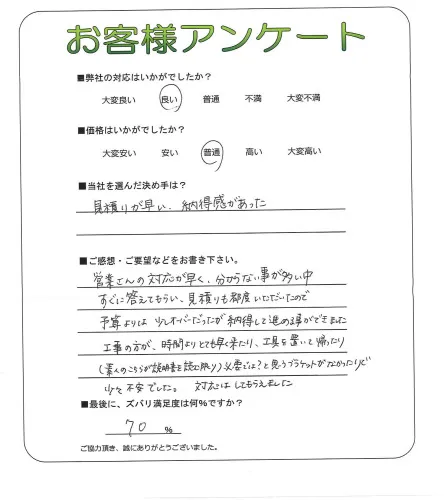 お客様アンケート
■弊社の対応はいかがでしたか？
大変良い 良い 普通 不満 大変不満
■価格はいかがでしたか？
大変安い 安い 普通 高い 大変高い
■当社を選んだ決め手は？
見積りが早い、納得感があった
■ご感想・ご要望などをお書き下さい。
営業さんの対応が早く、分からない事が多い中
すぐに答えてもらい、見積りも都度いただいたので
予算よりは少しオーバーだったが納得して進める事ができました
工事の方が、時間よりとても早く来たり、工具を置いて帰ったり
(素人のこちらが説明書を読む限り)必要では?と思うブラケットがなかったりと
少々不安でした。 対応はしてもらえました
■最後に、ズバリ満足度は何%ですか？
70 %
ご協力頂き、誠にありがとうございました。